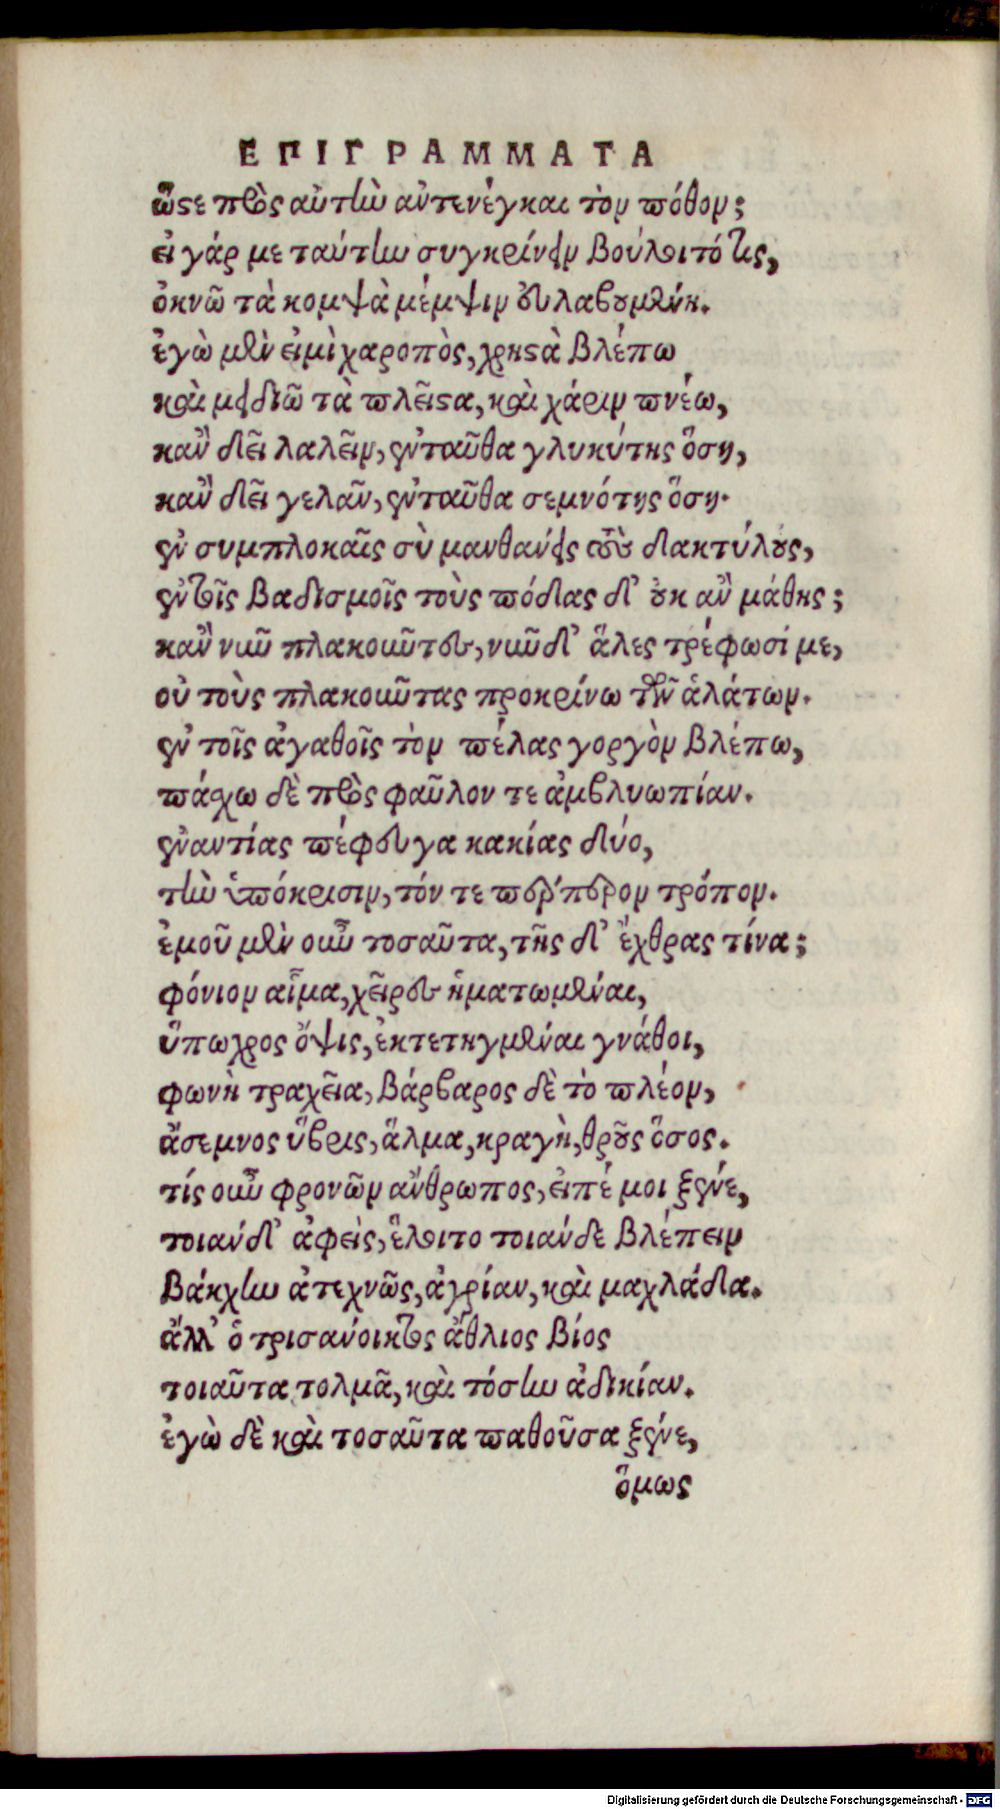 ΕΠΙΓΡΑΜΜΑΤΑ
ὥστε πρὸς αὐτὴν ἀντενέγκαι τὸν πόθον;
εἰ γάρ με ταύτην συγκρίνειν βούλοιτό τις,
ὀκνῶ τὰ κομψὰ μέμψιν εὐλαβουμένη.
ἐγὼ μὲν εἰμὶ χαροπὸς, χρηστὰ βλέπω
καὶ μειδιῶ τὰ πλεῖστα, καὶ χάριν πνέω,
κἂν δεῖ λαλεῖν, ἐνταῦθα γλυκύτης ὅση,
κἂν δεῖ γελᾶν, ἐνταῦθα σεμνότης ὅση.
ἐν συμπλοκαῖς σὺ μανθάνεις τοὺς δακτύλους,
ἐν τοῖς βαδισμοῖς τοὺς πόδας δ' οὐκ ἂν μάθης;
κἂν νῦν πλακοῦντες, νῦν δ' ἅλες τρέφωσί με,
οὐ τοὺς πλακοῦντας προκρίνω τῶν ἁλάτων.
ἐν τοῖς ἀγαθοῖς τὸν πέλας γοργὸν βλέπω,
πάσχω δὲ πρὸς φαῦλον τε ἀμβλυωπίαν.
ἐναντίας πέφευγα κακίας δύο,
τὴν ὑπόκρισιν, τόν τε πέρπερον τρόπον.
ἐμοῦ μὲν οὖν τοσαῦτα, τῆς δ' ἔχθρας τίνα;
φόνιον αἷμα, χεῖρες ἡματωμέναι,
ὕπωχρος ὄψις, ἐκτετηγμέναι γνάθοι,
φωνὴ τραχεῖα, βάρβαρος δὲ τὸ πλέον,
ἄσεμνος ὕβρις, ἅλμα, κραγὴ, θροῦς ὅσος.
τίς οὖν φρονῶν ἄνθρωπος, εἰπέ μοι ξένε,
τοιάνδ' ἀφεὶς, ἕλοιτο τοιάνδε βλέπειν
βάκχην ἀτεχνῶς, ἀγρίαν, καὶ μαχλάδα.
ἀλλ' ὁ τρισάνοικτος ἄθλιος βίος
τοιαῦτα τολμᾶ, καὶ τόσην ἀδικίαν.
ἐγὼ δὲ καὶ τοσαῦτα παθοῦσα ξένε,
ὅμως
Digitalisierung gefördert durch die Deutsche Forschungsgemeinschaft - DFG